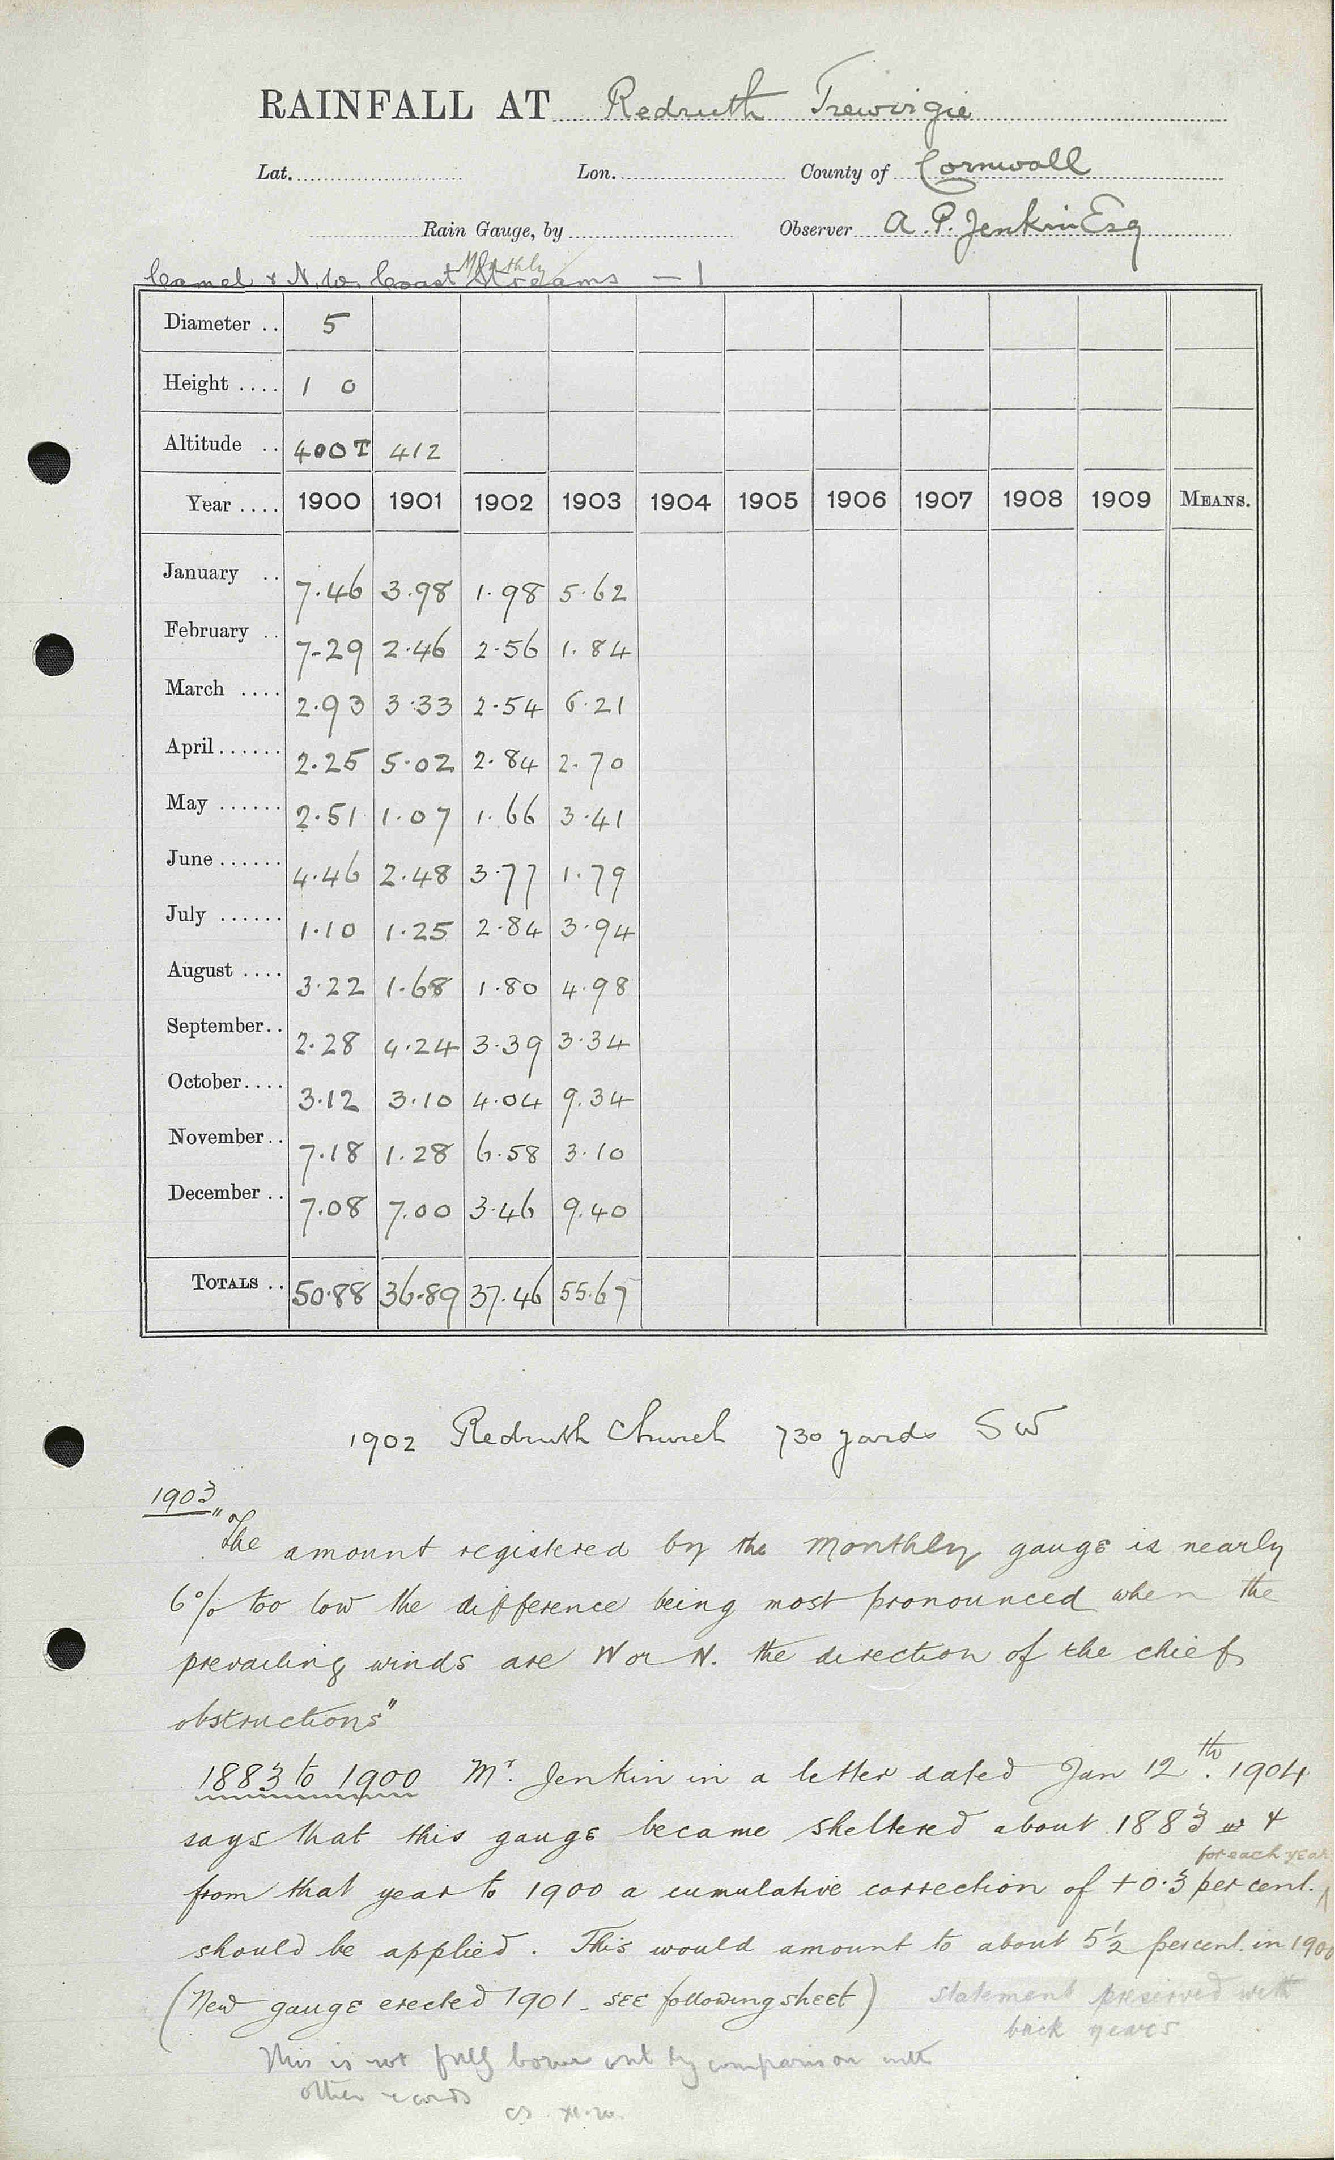 RAINFALL AT Redruth Trewirgie
Lat. Lon. County of Cornwall
Rain Gauge, by Observer A. P. Jenkin Esq
Monthly
Camel & N. W. Coast Streams — 1
Diameter .. 5
Height .... 1 0
Altitude .. 400T 412
Year .... 1900 1901 1902 1903 1904 1905 1906 1907 1908 1909 MEANS.
January .. 7.46 3.98 1.98 5.62
February .. 7.29 2.46 2.56 1.84
March .... 2.93 3.33 2.54 6.21
April ...... 2.25 5.02 2.84 2.70
May ...... 2.51 1.07 1.66 3.41
June ...... 4.46 2.48 3.77 1.79
July ...... 1.10 1.25 2.84 3.94
August .... 3.22 1.68 1.80 4.98
September.. 2.28 4.24 3.39 3.34
October.... 3.12 3.10 4.04 9.34
November.. 7.18 1.28 6.58 3.10
December .. 7.08 7.00 3.46 9.40
TOTALS .. 50.88 36.89 37.46 55.67
1902 Redruth Church 730 yards SW
1903
"The amount registered by the monthly gauge is nearly
6% too low the difference being most pronounced when the
prevailing winds are W or N. the direction of the chief
obstructions"
1883 to 1900 Mr. Jenkin in a letter dated Jan 12th. 1904
says that this gauge became sheltered about 1883 &
for each year
from that year to 1900 a cumulative correction of +0.3 per cent.
should be applied. This would amount to about 5½ per cent. in 1900
(New gauge erected 1901 - see following sheet) statement preserved with
back years
This is not fully borne out by comparison with
other records